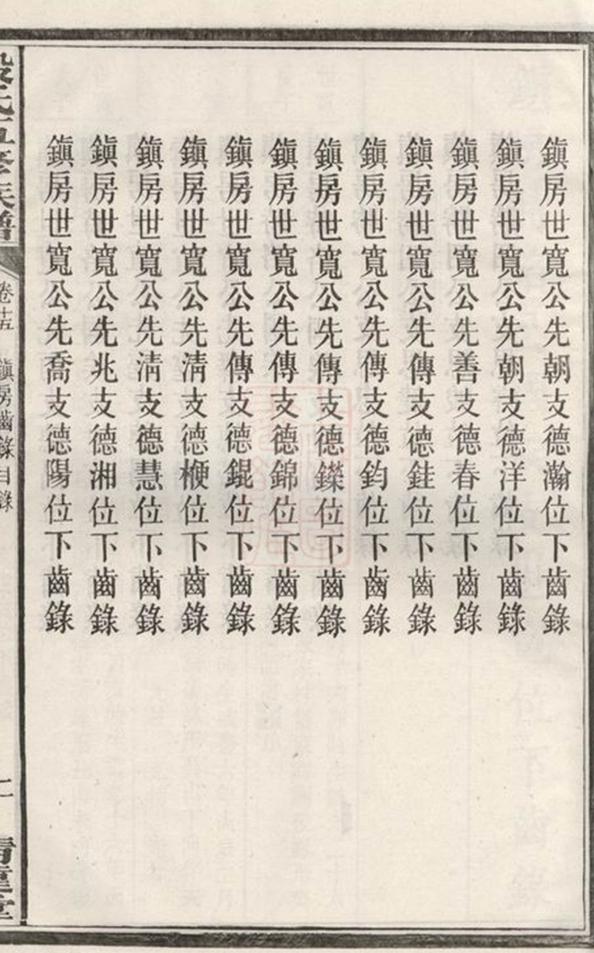 鎭房世寬公先朝支德瀚位下齒錄
鎭房世寬公先朝支德洋位下齒錄
鎭房世寬公先善支德春位下齒錄
鎭房世寬公先傳支德銈位下齒錄
鎭房世寬公先傳支德鈞位下齒錄
鎭房世寬公先傳支德鑅位下齒錄
鎭房世寬公先傳支德錦位下齒錄
鎭房世寬公先傳支德錕位下齒錄
鎭房世寬公先淸支德楩位下齒錄
鎭房世寬公先淸支德慧位下齒錄
鎭房世寬公先兆支德湘位下齒錄
鎭房世寬公先喬支德陽位下齒錄
氏五修族譜
卷十五 鎭房齒錄目錄
二
堂